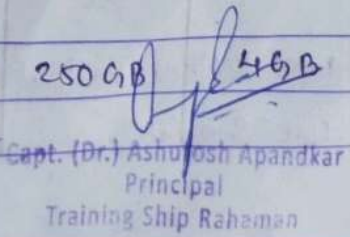 250 GB 4GB
Capt. (Dr.) Ashutosh Apandkar
Principal
Training Ship Rahaman